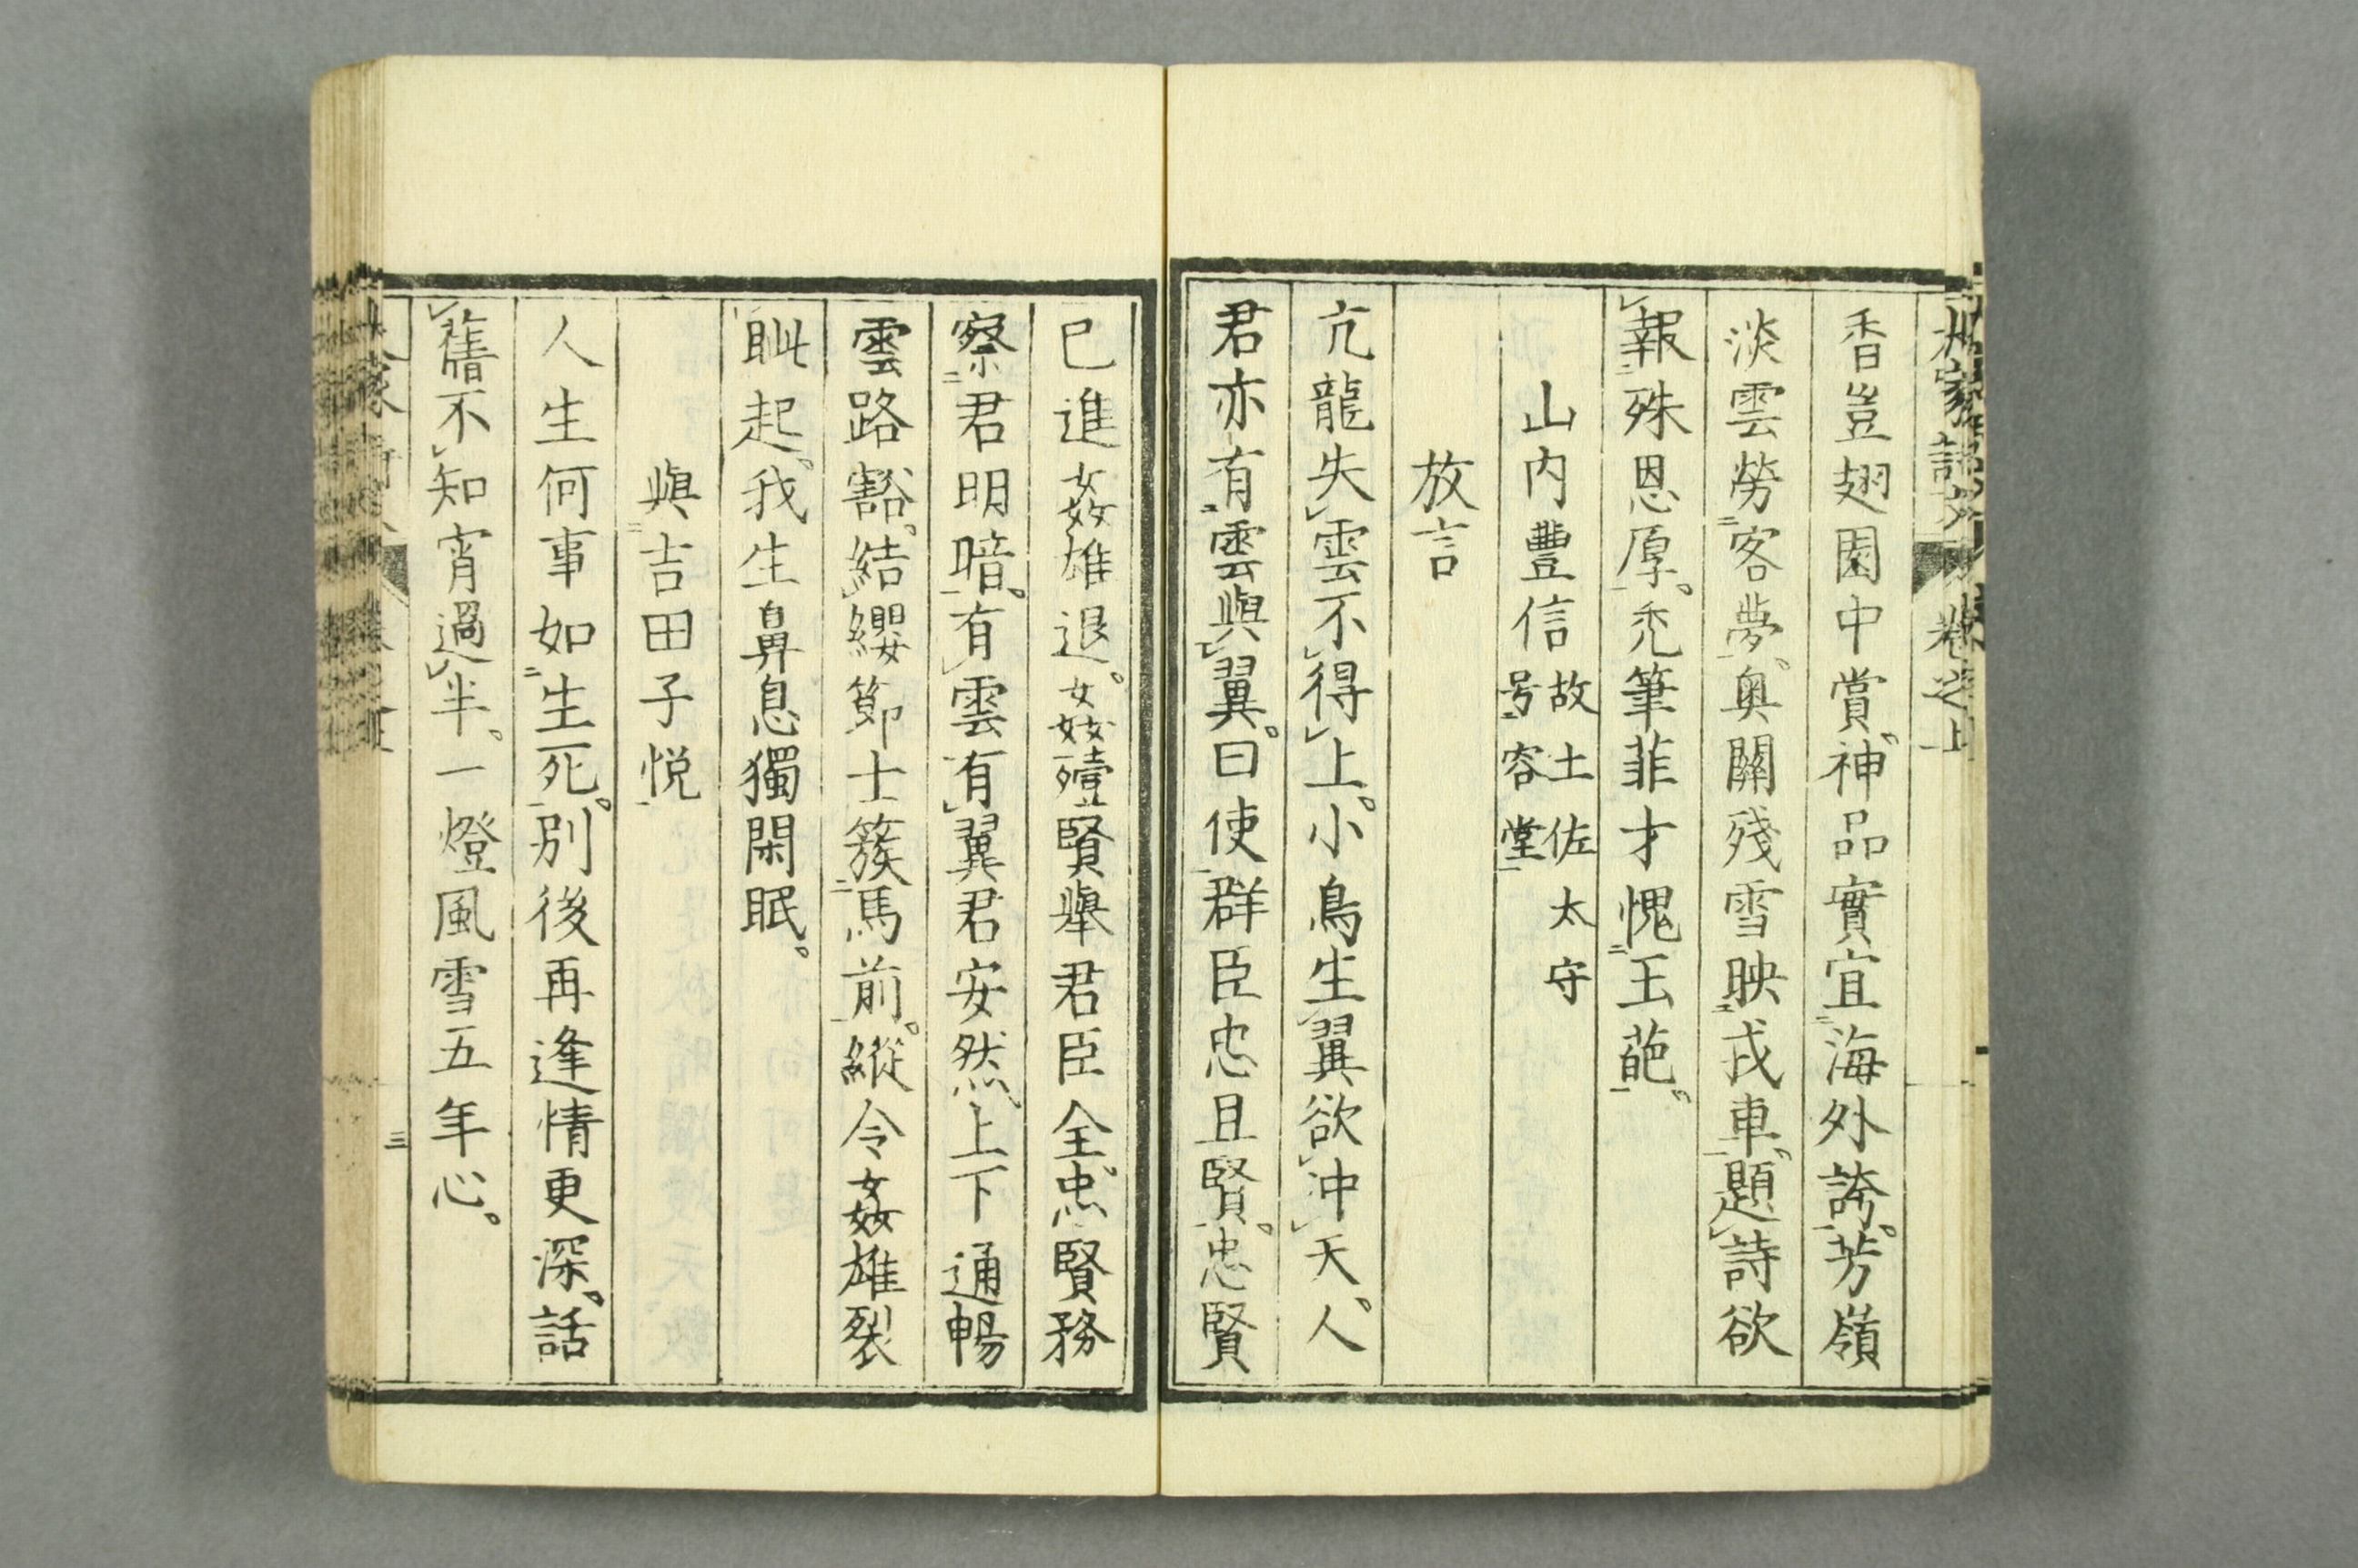 香豈翅園中賞。神品實宜海外誇。芳嶺
淡雲勞客夢。奥關殘雪映戎車。題詩欲
報殊恩厚。禿筆菲才愧玉葩。
山内豐信 故土佐太守
号容堂
放言
亢龍失雲不得上。小鳥生翼欲冲天。人
君亦有雲與翼。曰使群臣忠且賢。忠賢
已進姦雄退。姦殪賢舉君臣全。忠賢務
察君明暗。有雲有翼君安然。上下通暢
雲路豁。結纓節士簇馬前。縱令姦雄裂
眦起。我生鼻息獨閑眠。
與吉田子悦
人生何事如生死。別後再逢情更深。話
舊不知宵過半。一燈風雪五年心。
三